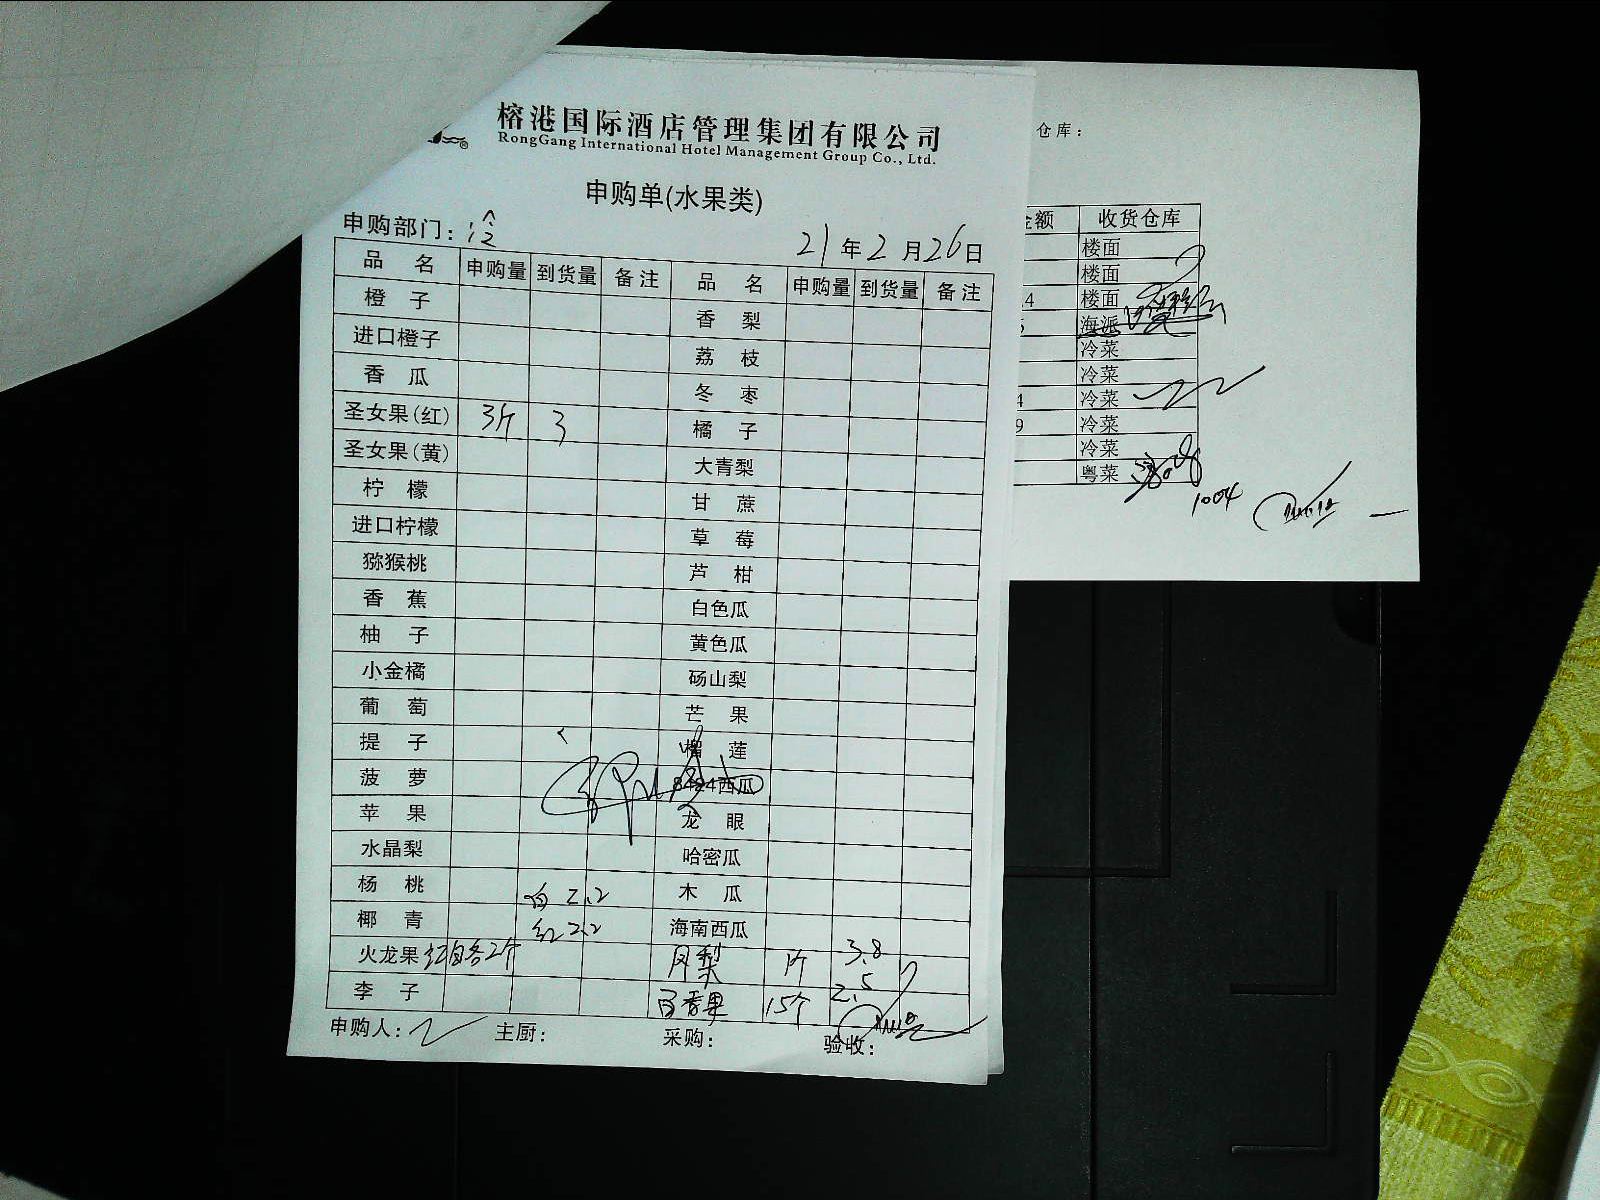 榕港国际酒店管理集团有限公司
RongGang International Hotel Management Group Co., Ltd.
申购单(水果类)
申购部门: 冷 21年2月26日
品名 申购量 到货量 备注 品名 申购量 到货量 备注
橙子 香梨
进口橙子 荔枝
香瓜 冬枣
圣女果(红) 3斤 3 橘子
圣女果(黄) 大青梨
柠檬 甘蔗
进口柠檬 草莓
猕猴桃 芦柑
香蕉 白色瓜
柚子 黄色瓜
小金橘 砀山梨
葡萄 芒果
提子 榴莲
菠萝 8424西瓜
苹果 龙眼
水晶梨 哈密瓜
杨桃 白 2.2 木瓜
椰青 红 2.2 海南西瓜
火龙果 红白各2个 凤梨 1个 3.8
李子 百香果 15个 2.5
申购人: 主厨: 采购: 验收:
仓库:
金额 收货仓库
楼面
楼面
.4 楼面
海派
冷菜
冷菜
4 冷菜
9 冷菜
冷菜
粤菜
1004